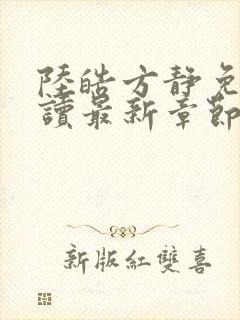 陸皓方靜免
讀最新章節
新版紅雙喜